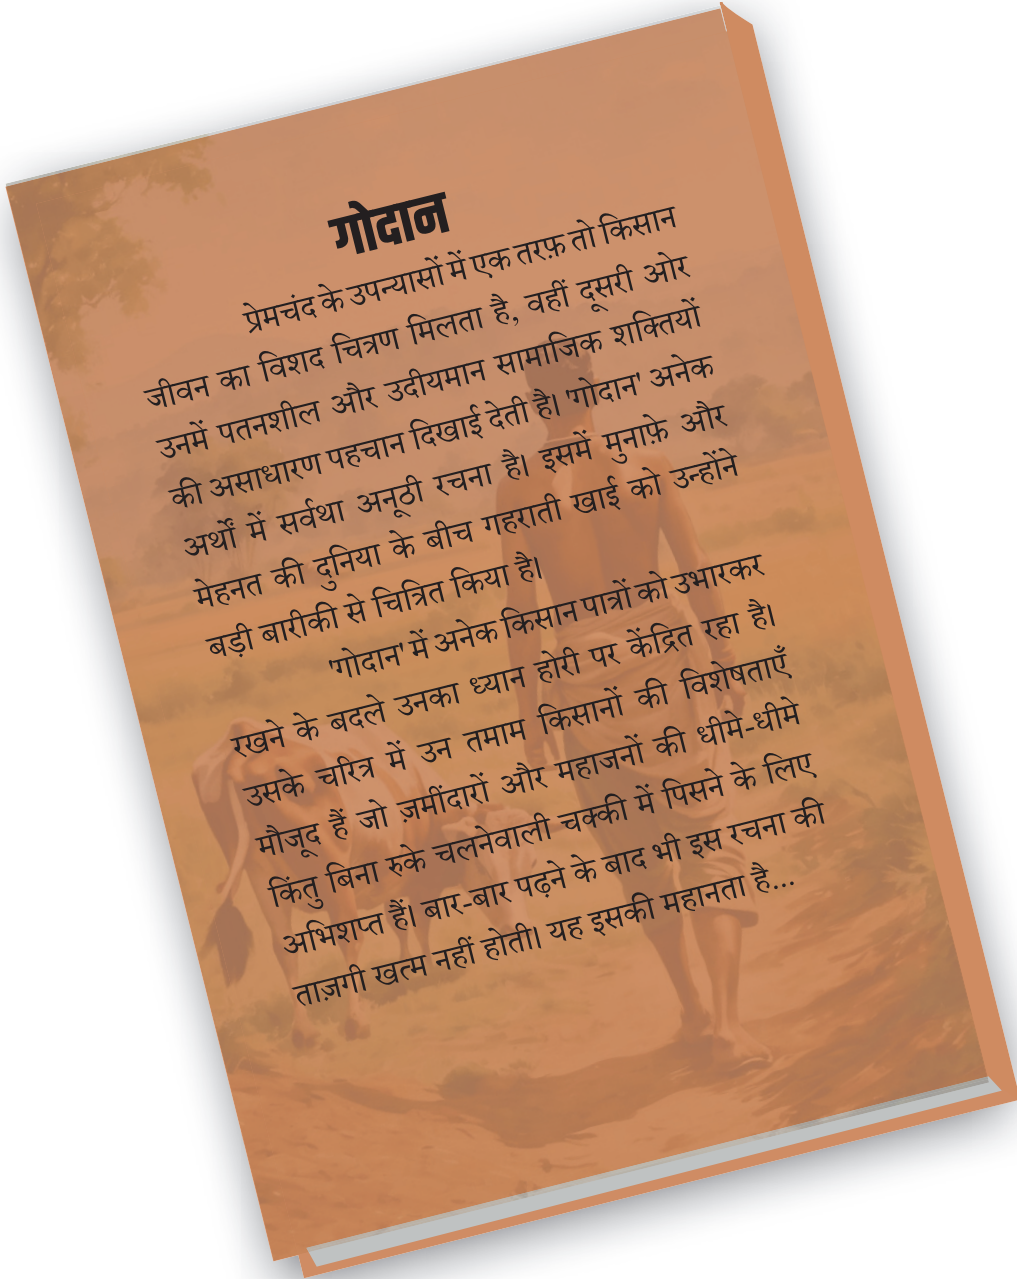 गोदान
प्रेमचंद के उपन्यासों में एक तरफ़ तो किसान
जीवन का विशद चित्रण मिलता है, वहीं दूसरी ओर
उनमें पतनशील और उदीयमान सामाजिक शक्तियों
की असाधारण पहचान दिखाई देती है। 'गोदान' अनेक
अर्थों में सर्वथा अनूठी रचना है। इसमें मुनाफ़े और
मेहनत की दुनिया के बीच गहराती खाई को उन्होंने
बड़ी बारीकी से चित्रित किया है।
'गोदान' में अनेक किसान पात्रों को उभारकर
रखने के बदले उनका ध्यान होरी पर केंद्रित रहा है।
उसके चरित्र में उन तमाम किसानों की विशेषताएँ
मौजूद हैं जो ज़मींदारों और महाजनों की धीमे-धीमे
किंतु बिना रुके चलनेवाली चक्की में पिसने के लिए
अभिशप्त हैं। बार-बार पढ़ने के बाद भी इस रचना की
ताज़गी खत्म नहीं होती। यह इसकी महानता है...